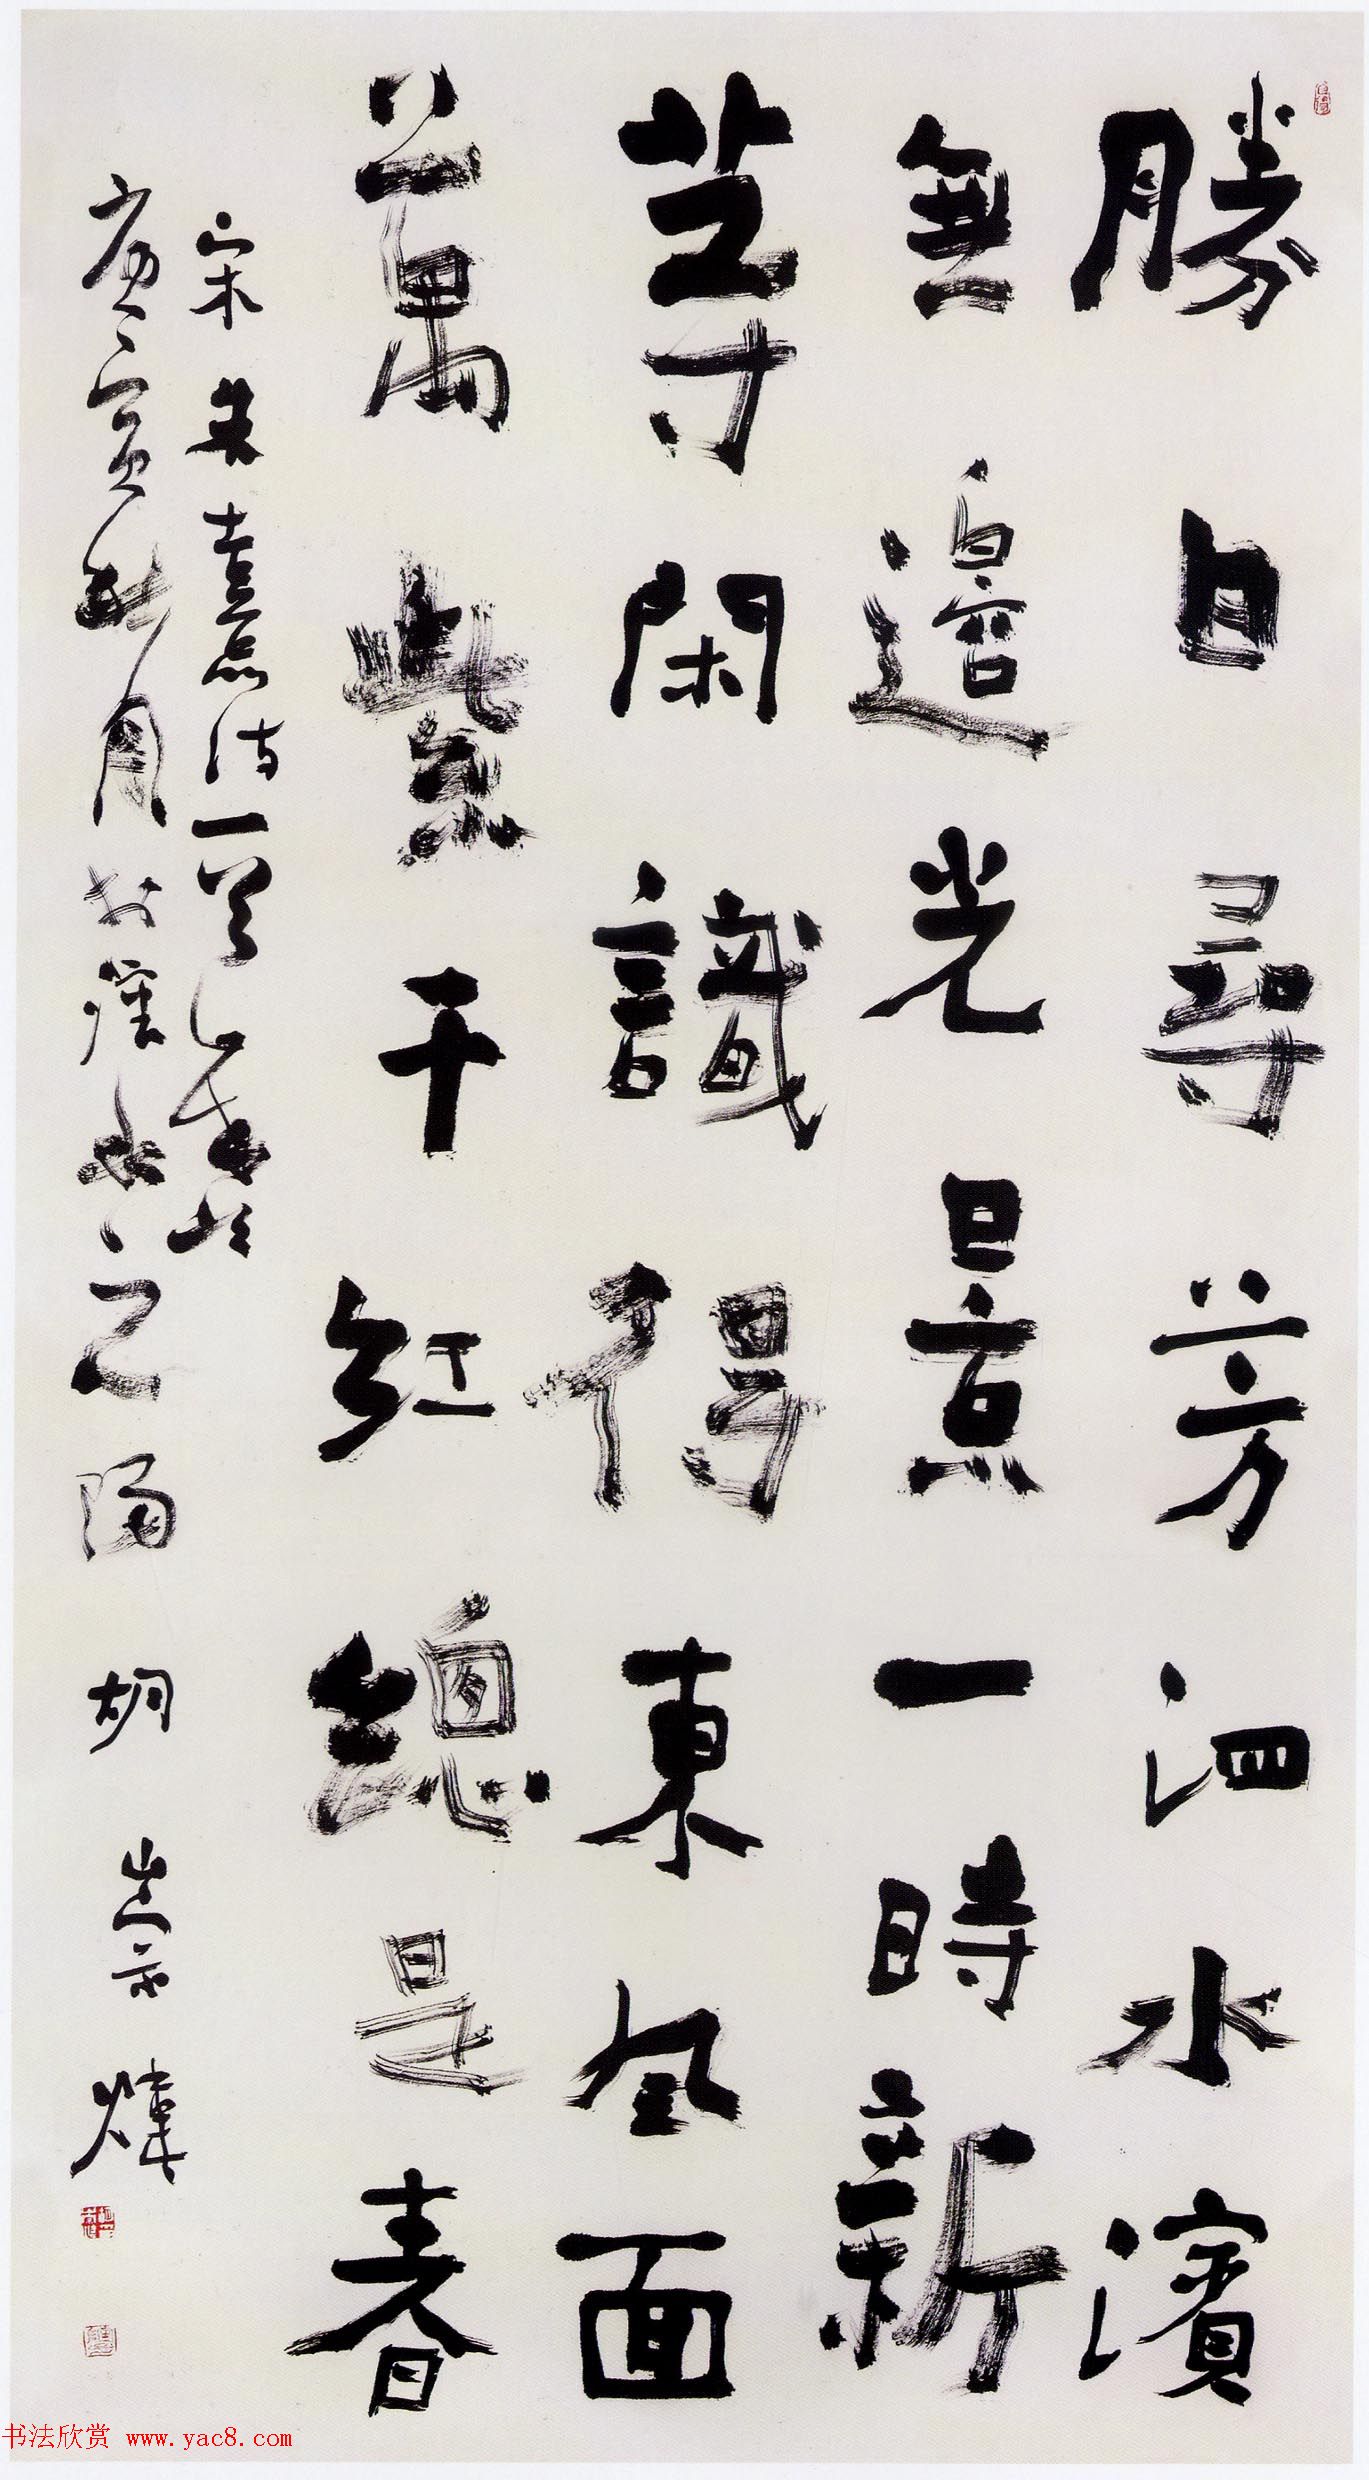 勝日尋芳泗水濱
無邊光景一時新
等閑識得東風面
萬紫千紅總是春
宋朱熹詩一首
庚寅秋月於水之陽 胡崇煒
书法欣赏 www.yac8.com